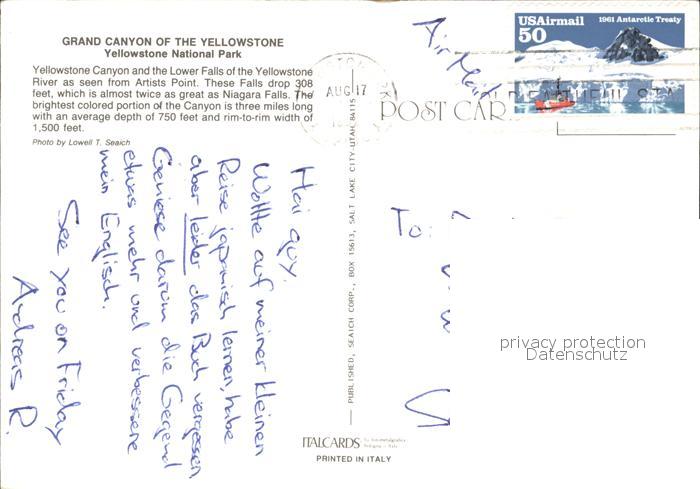 GRAND CANYON OF THE YELLOWSTONE
Yellowstone National Park
Yellowstone Canyon and the Lower Falls of the Yellowstone
River as seen from Artists Point. These Falls drop 308
feet, which is almost twice as great as Niagara Falls. The
brightest colored portion of the Canyon is three miles long
with an average depth of 750 feet and rim-to-rim width of
1,500 feet.
Photo by Lowell T. Seaich
Hai guy.
Wollte auf meiner kleinen
Reise japanisch lernen, habe
aber leider das Buch vergessen.
Geniese darum die Gegend
etwas mehr und verbessere
mein Englisch.
See you on Friday
Andreas R.
PUBLISHED, SEAICH CORP., BOX 15613, SALT LAKE CITY-UTAH 84115
ITALCARDS
PRINTED IN ITALY
Air Mail
AUG 17
POST CAR
USAirmail
50
1961 Antarctic Treaty
To:
privacy protection
Datenschutz